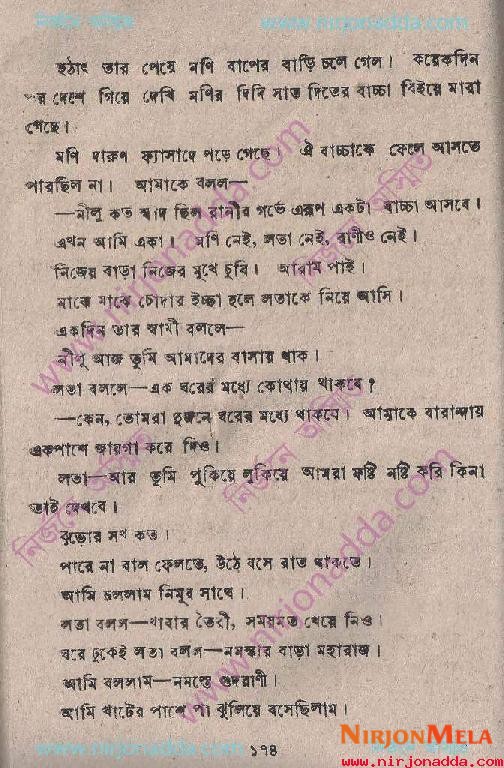 হঠাৎ তার পেয়ে মণি বাপের বাড়ি চলে গেল। কয়েকদিন
পর দেশে গিয়ে দেখি মণির দিদি সাত দিনের বাচ্চা বিইয়ে মারা
গেছে।
মণি দারুণ ফ্যাসাদে পড়ে গেছে। ঐ বাচ্চাকে ফেলে আসতে
পারছিল না। আমাকে বলল—
—নীলু কত স্বাদ ছিল রানীর গর্ভে এরূপ একটা বাচ্চা আসবে।
এখন আমি একা। মণি নেই, লতা নেই, রাণীও নেই।
নিজের বাড়া নিজের মুখে চুষি। আরাম পাই।
মাঝে মাঝে চোদার ইচ্ছা হলে লতাকে নিয়ে আসি।
একদিন তার স্বামী বললে—
নীলু আজ তুমি আমাদের বাসায় থাক।
লতা বললে—এক ঘরের মধ্যে কোথায় থাকবে?
—কেন, তোমরা দুজনে ঘরের মধ্যে থাকবে। আমাকে বারান্দায়
একপাশে জায়গা করে দিও।
লতা—আর তুমি লুকিয়ে লুকিয়ে আমরা ফষ্টি নষ্টি করি কিনা
তাই দেখবে।
বুড়োর সখ কত।
পারে না বাল ফেলতে, উঠে বসে রাত থাকতে।
আমি চললাম নিমুর সাথে।
লতা বলল—খাবার তৈরী, সময়মত খেয়ে নিও।
ঘরে ঢুকেই লতা বলল—নমস্কার বাড়া মহারাজ।
আমি বললাম—নমস্তে গুদরাণী।
আমি খাটের পাশে পা ঝুলিয়ে বসেছিলাম।
১৭৪
NIRJONMELA
www.nirjonadda.com